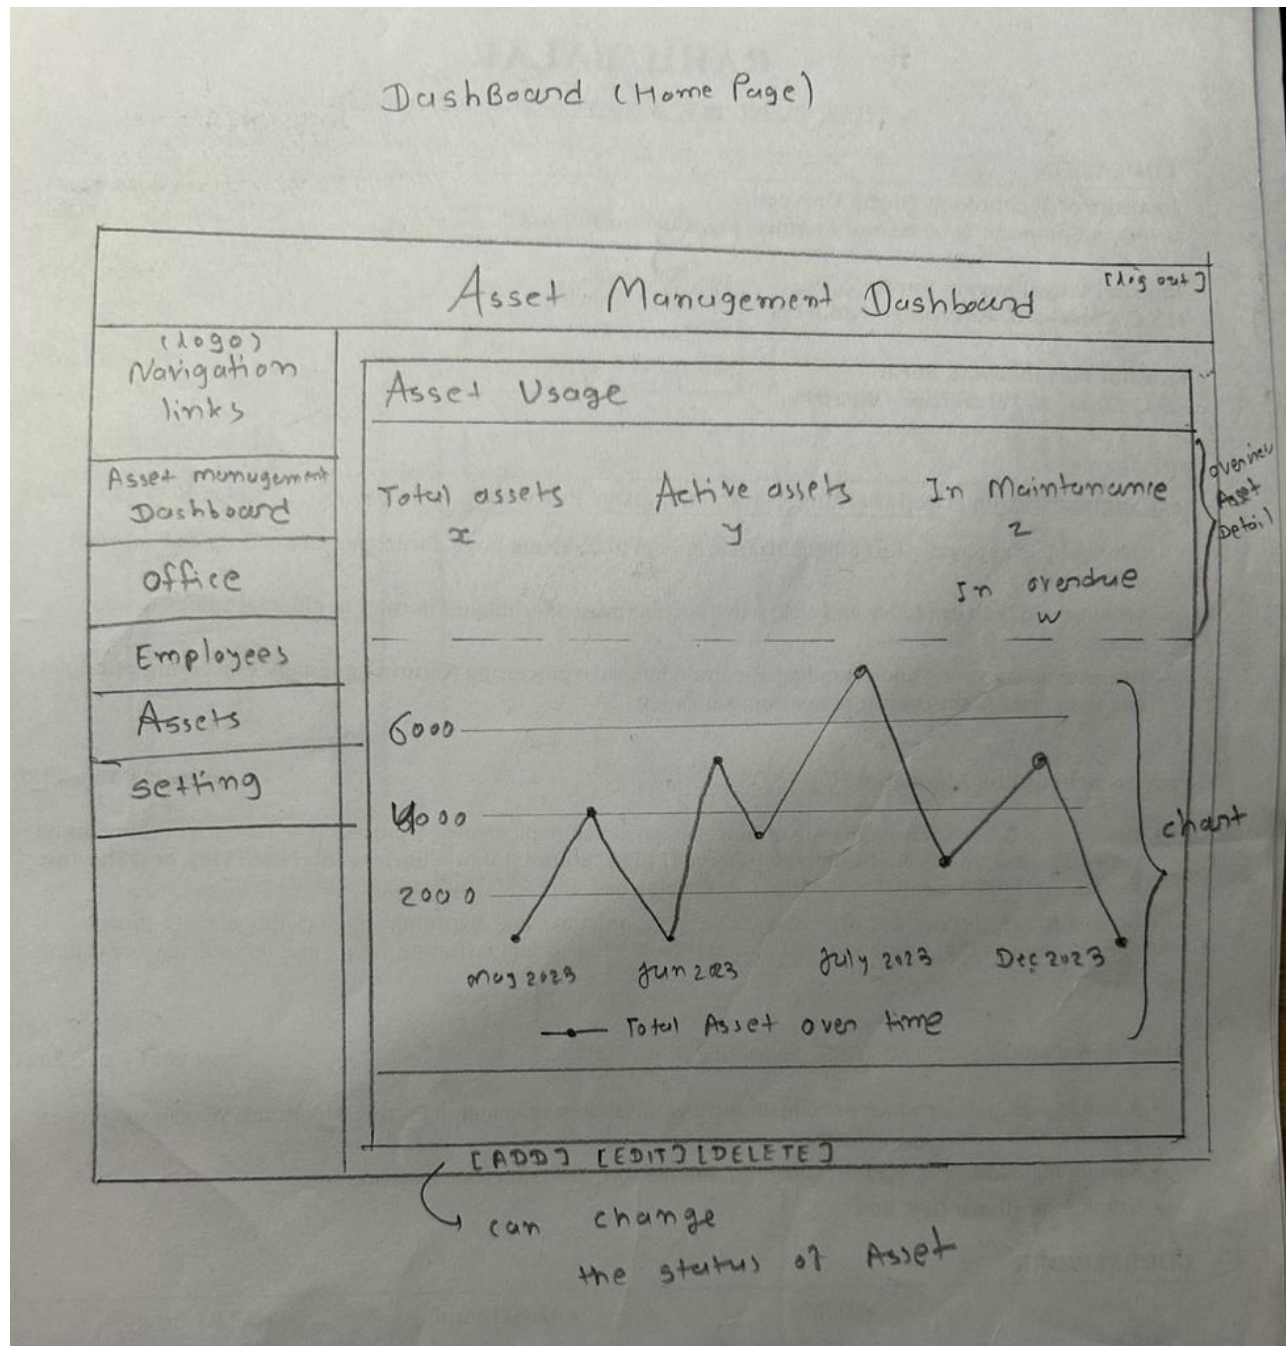 DashBoard (Home Page)
Asset Management Dashboard
[log out]
(logo)
Navigation
links
Asset management
Dashboard
office
Employees
Assets
setting
Asset Usage
Total assets
x
Active assets
y
In Maintanance
z
In overdue
w
overview
Asset
Detail
6000
4000
2000
chart
May 2023
Jun 2023
July 2023
Dec 2023
Total Asset over time
[ADD] [EDIT] [DELETE]
can change
the status of Asset